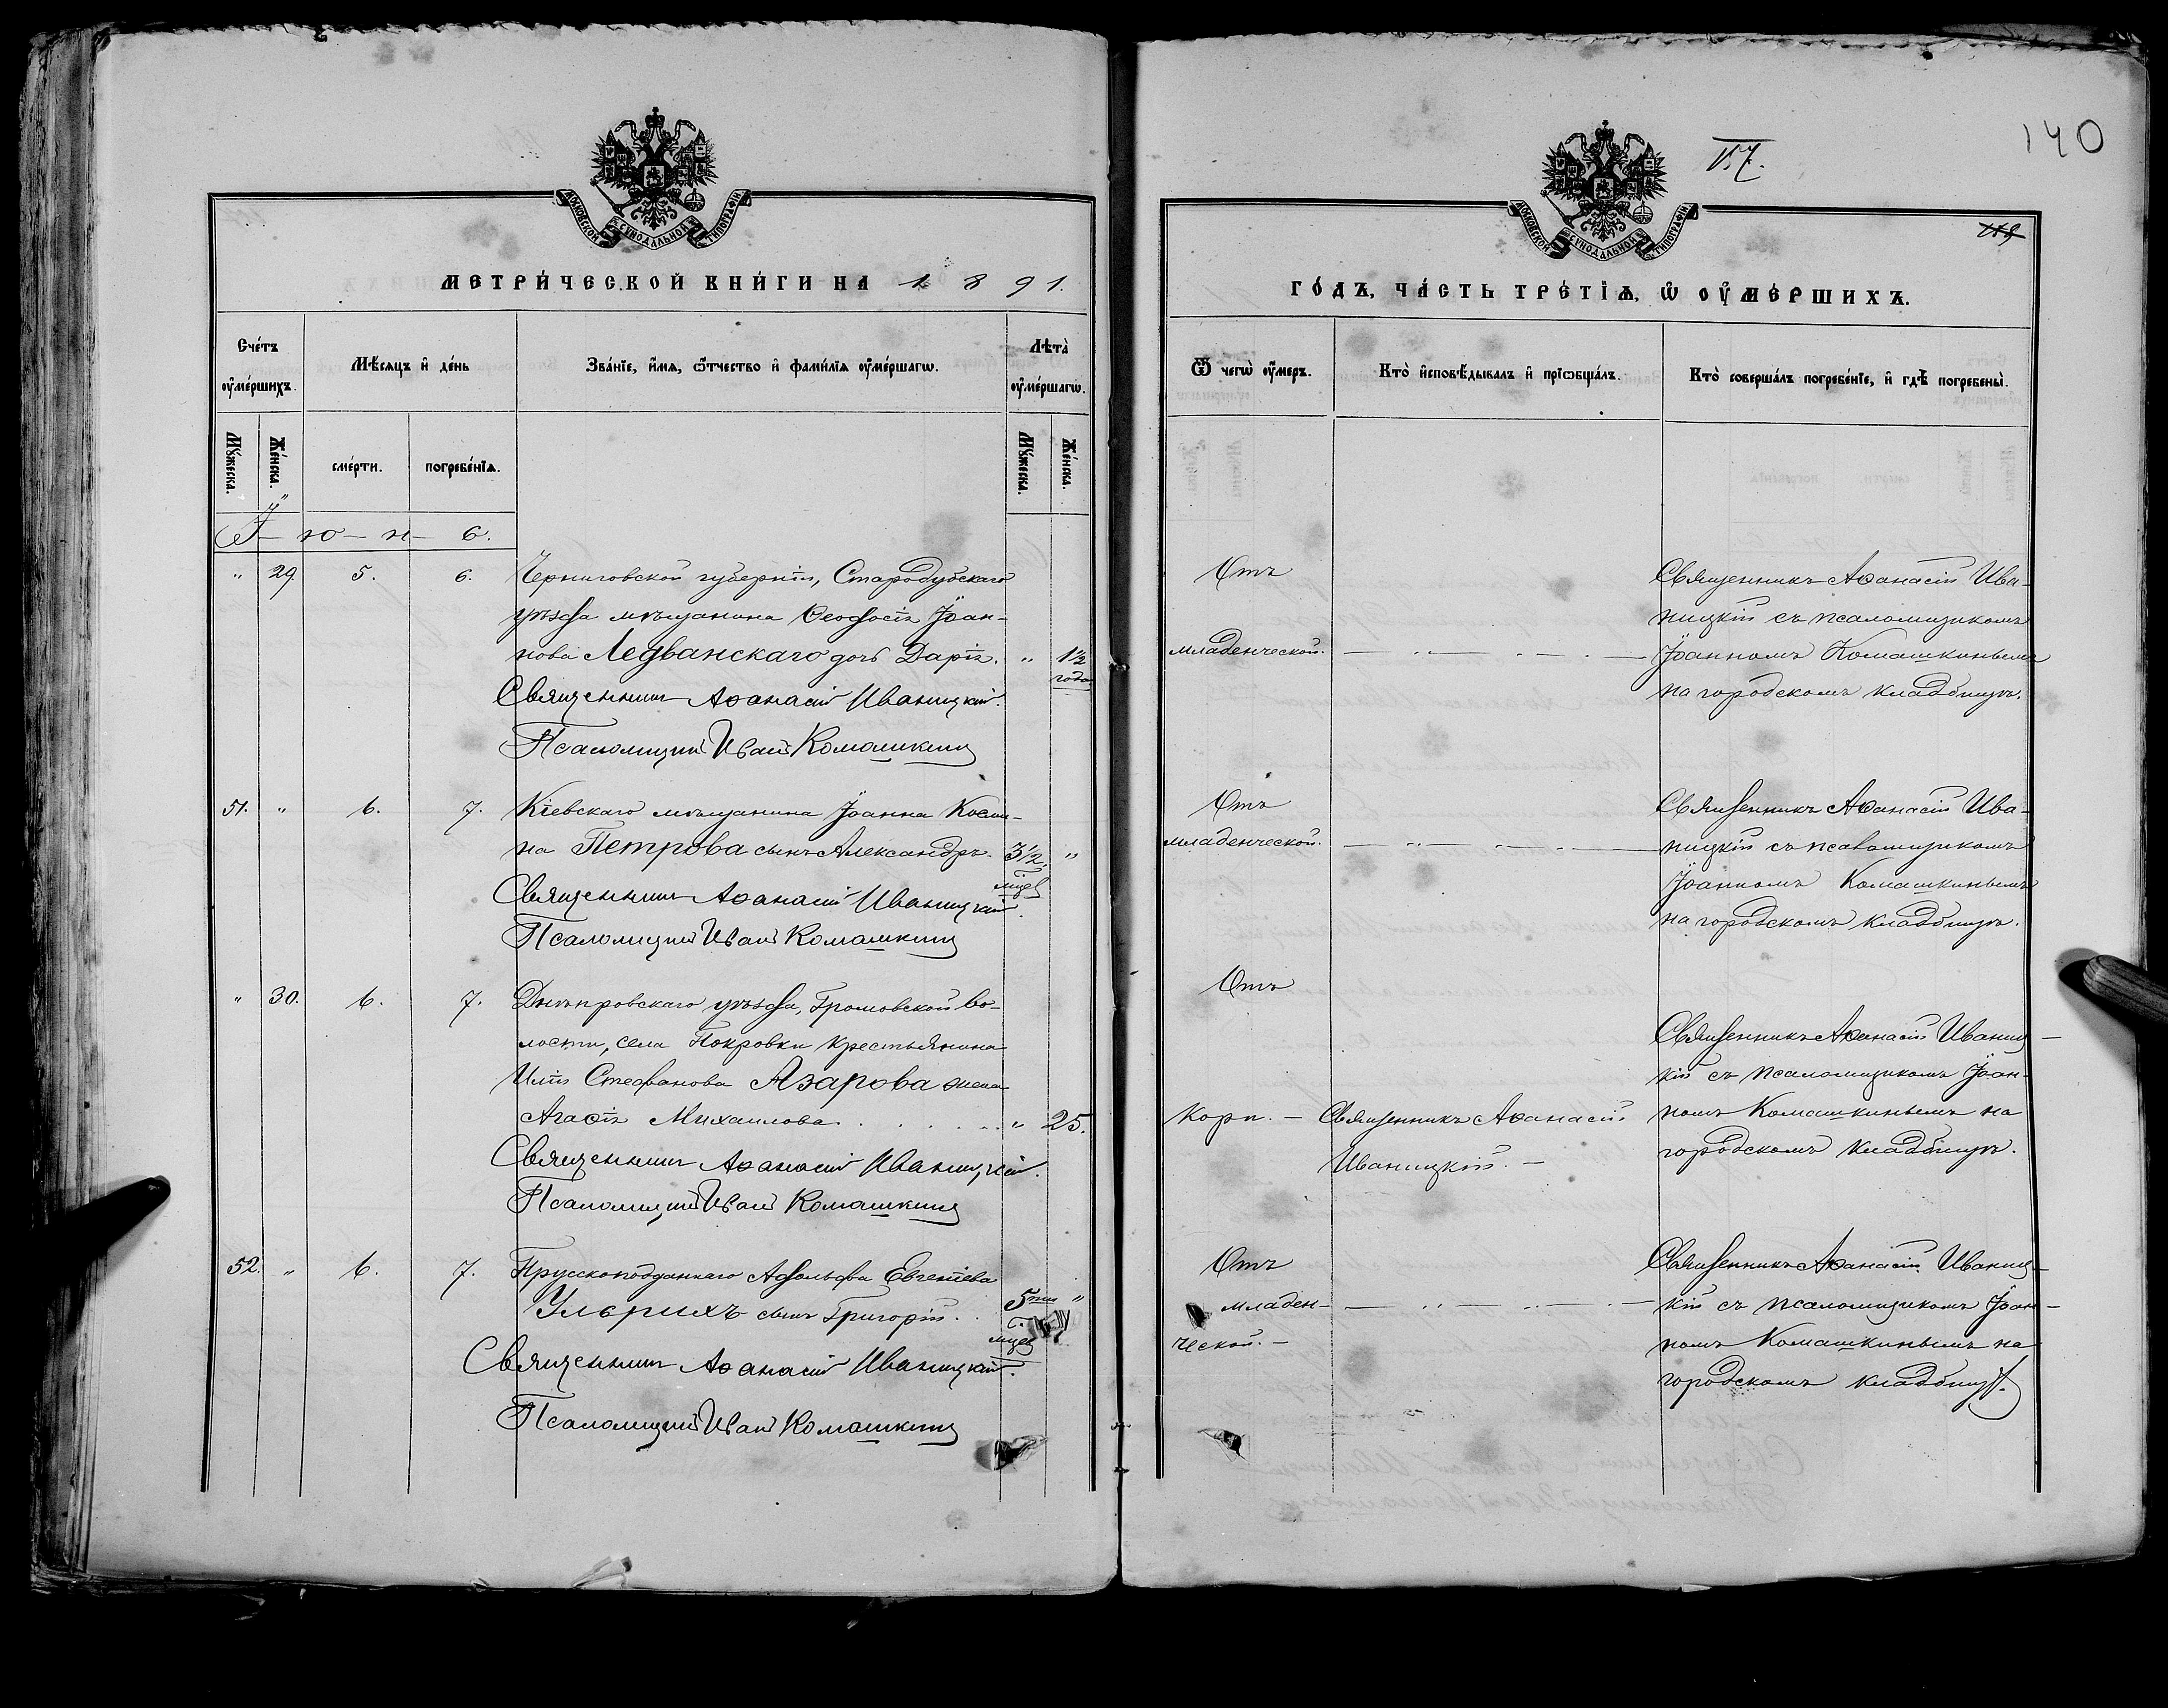 МОСКОВСКОЙ СѴНОДАЛЬНОЙ ТИПОГРАФІИ
МЕТРИ́ЧЕСКОЙ КНИ́ГИ НА 1891.
Сче́тъ оу҆ме́ршихъ.
Мѣ́сяцъ и҆ де́нь
Зва́нїе, и҆́мѧ, ѻ҆́тчество и҆ фами́лїѧ оу҆ме́ршагѡ.
Лѣта̀ оу҆ме́ршагѡ.
Мꙋ́жеска.
Же́нска.
сме́рти.
погребе́нїѧ.
Мꙋ́жеска.
Же́нска.
І – ю – н – ь.
" 29. 5. 6. Черниговской губерніи, Стародубскаго
уѣзда мѣщанина Ѳеодосія Іоан-
нова Ледванскаго дочь Дарія. " 1½
года
Священникъ Аѳанасій Иваницкій.
Псаломщикъ Иванъ Комашкинъ
51. " 6. 7. Кіевскаго мѣщанина Іоанна Косми-
на Петрова сынъ Александръ. 3½ "
мѣс
Священникъ Аѳанасій Иваницкій.
Псаломщикъ Иванъ Комашкинъ
" 30. 6. 7. Днѣпровскаго уѣзда, Громовской во-
лости, села Покровки крестьянина
Иліи Стефанова Азарова жена
Агаѳія Михаилова. " 25.
Священникъ Аѳанасій Иваницкій.
Псаломщикъ Иванъ Комашкинъ
52. " 6. 7. Прусскоподданнаго Адольфа Евгеніева
Ульрихъ сынъ Григорій. 5ти "
мѣс
Священникъ Аѳанасій Иваницкій.
Псаломщикъ Иванъ Комашкинъ
140
МОСКОВСКОЙ СѴНОДАЛЬНОЙ ТИПОГРАФІИ
ГО́ДЪ, ЧА́СТЬ ТРЕ́ТЇѦ, Ѡ҆ ОУ҆МЕ́РШИХЪ.
Ѿ чегѡ̀ оу҆́меръ.
Кто̀ и҆сповѣ́дывалъ и҆ прїѡбща́лъ.
Кто̀ соверша́лъ погребе́нїе, и҆ гдѣ̀ погребены̀.
Отъ
младенческой.
Священникъ Аѳанасій Ива-
ницкій съ псаломщикомъ
Іоанномъ Комашкинымъ
на городскомъ кладбищѣ.
Отъ
младенческой.
Священникъ Аѳанасій Ива-
ницкій съ псаломщикомъ
Іоанномъ Комашкинымъ
на городскомъ кладбищѣ.
Отъ
Кори. – Священникъ Аѳанасій
Иваницкій. –
Священникъ Аѳанасій Иваниц-
кій съ псаломщикомъ Іоан-
номъ Комашкинымъ на
городскомъ кладбищѣ.
Отъ
младен-
ческой. –
Священникъ Аѳанасій Иваниц-
кій съ псаломщикомъ Іоан-
номъ Комашкинымъ на
городскомъ кладбищѣ.